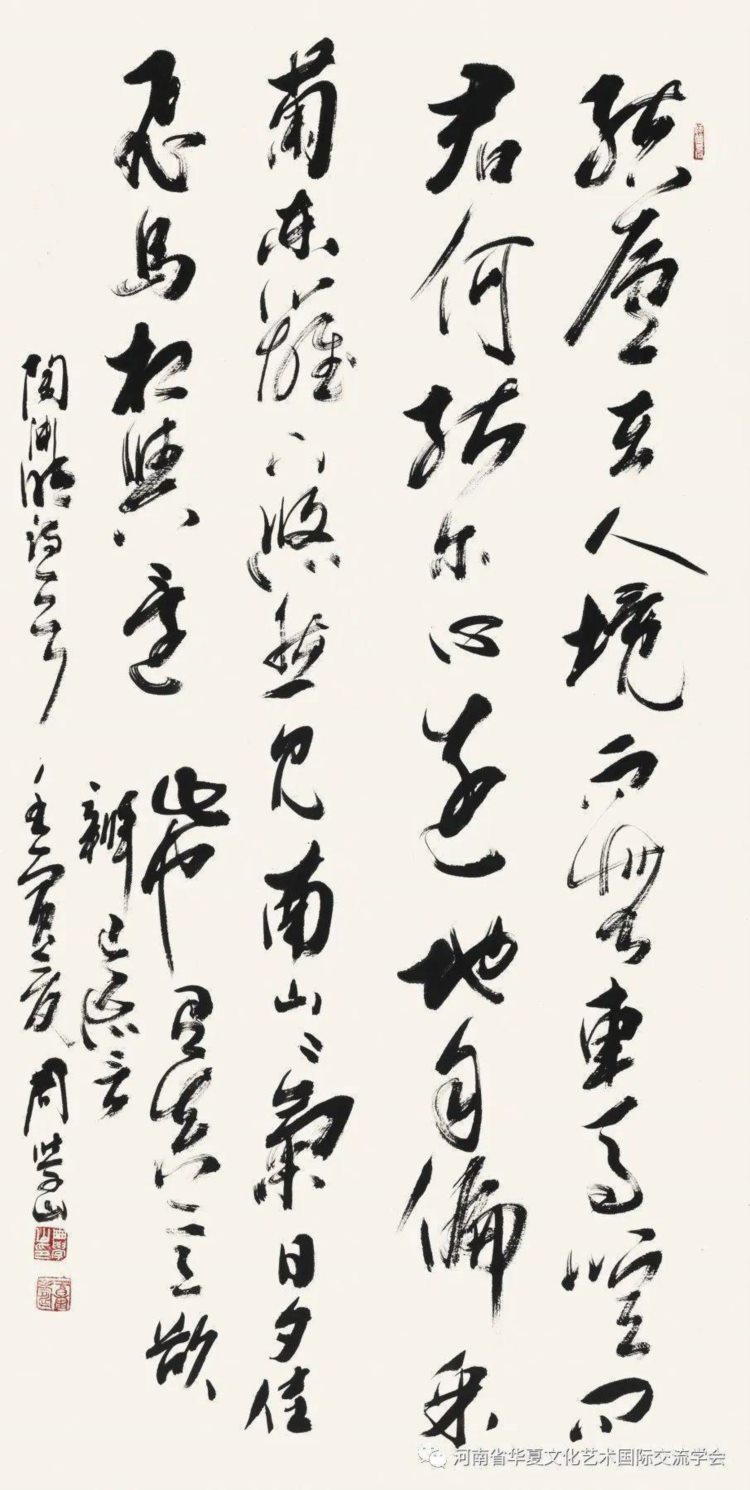 結廬在人境而無車馬喧问
君何能尔心遠地自偏采
菊東籬下悠然見南山〻氣日夕佳
飛鳥相與還
此中有真意欲
辨已忘言
陶渊明诗一首 壬寅夏 周学山
河南省华夏文化艺术国际交流学会